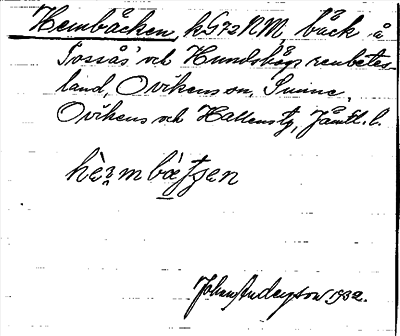 Hembäcken, kG72NM, bäck å
Tossås' och Hundshögs renbetes-
land, Ovikens sn, Sunne,
Ovikens och Hallens tg, Jämtl. l.
Johan Anderson 1932.